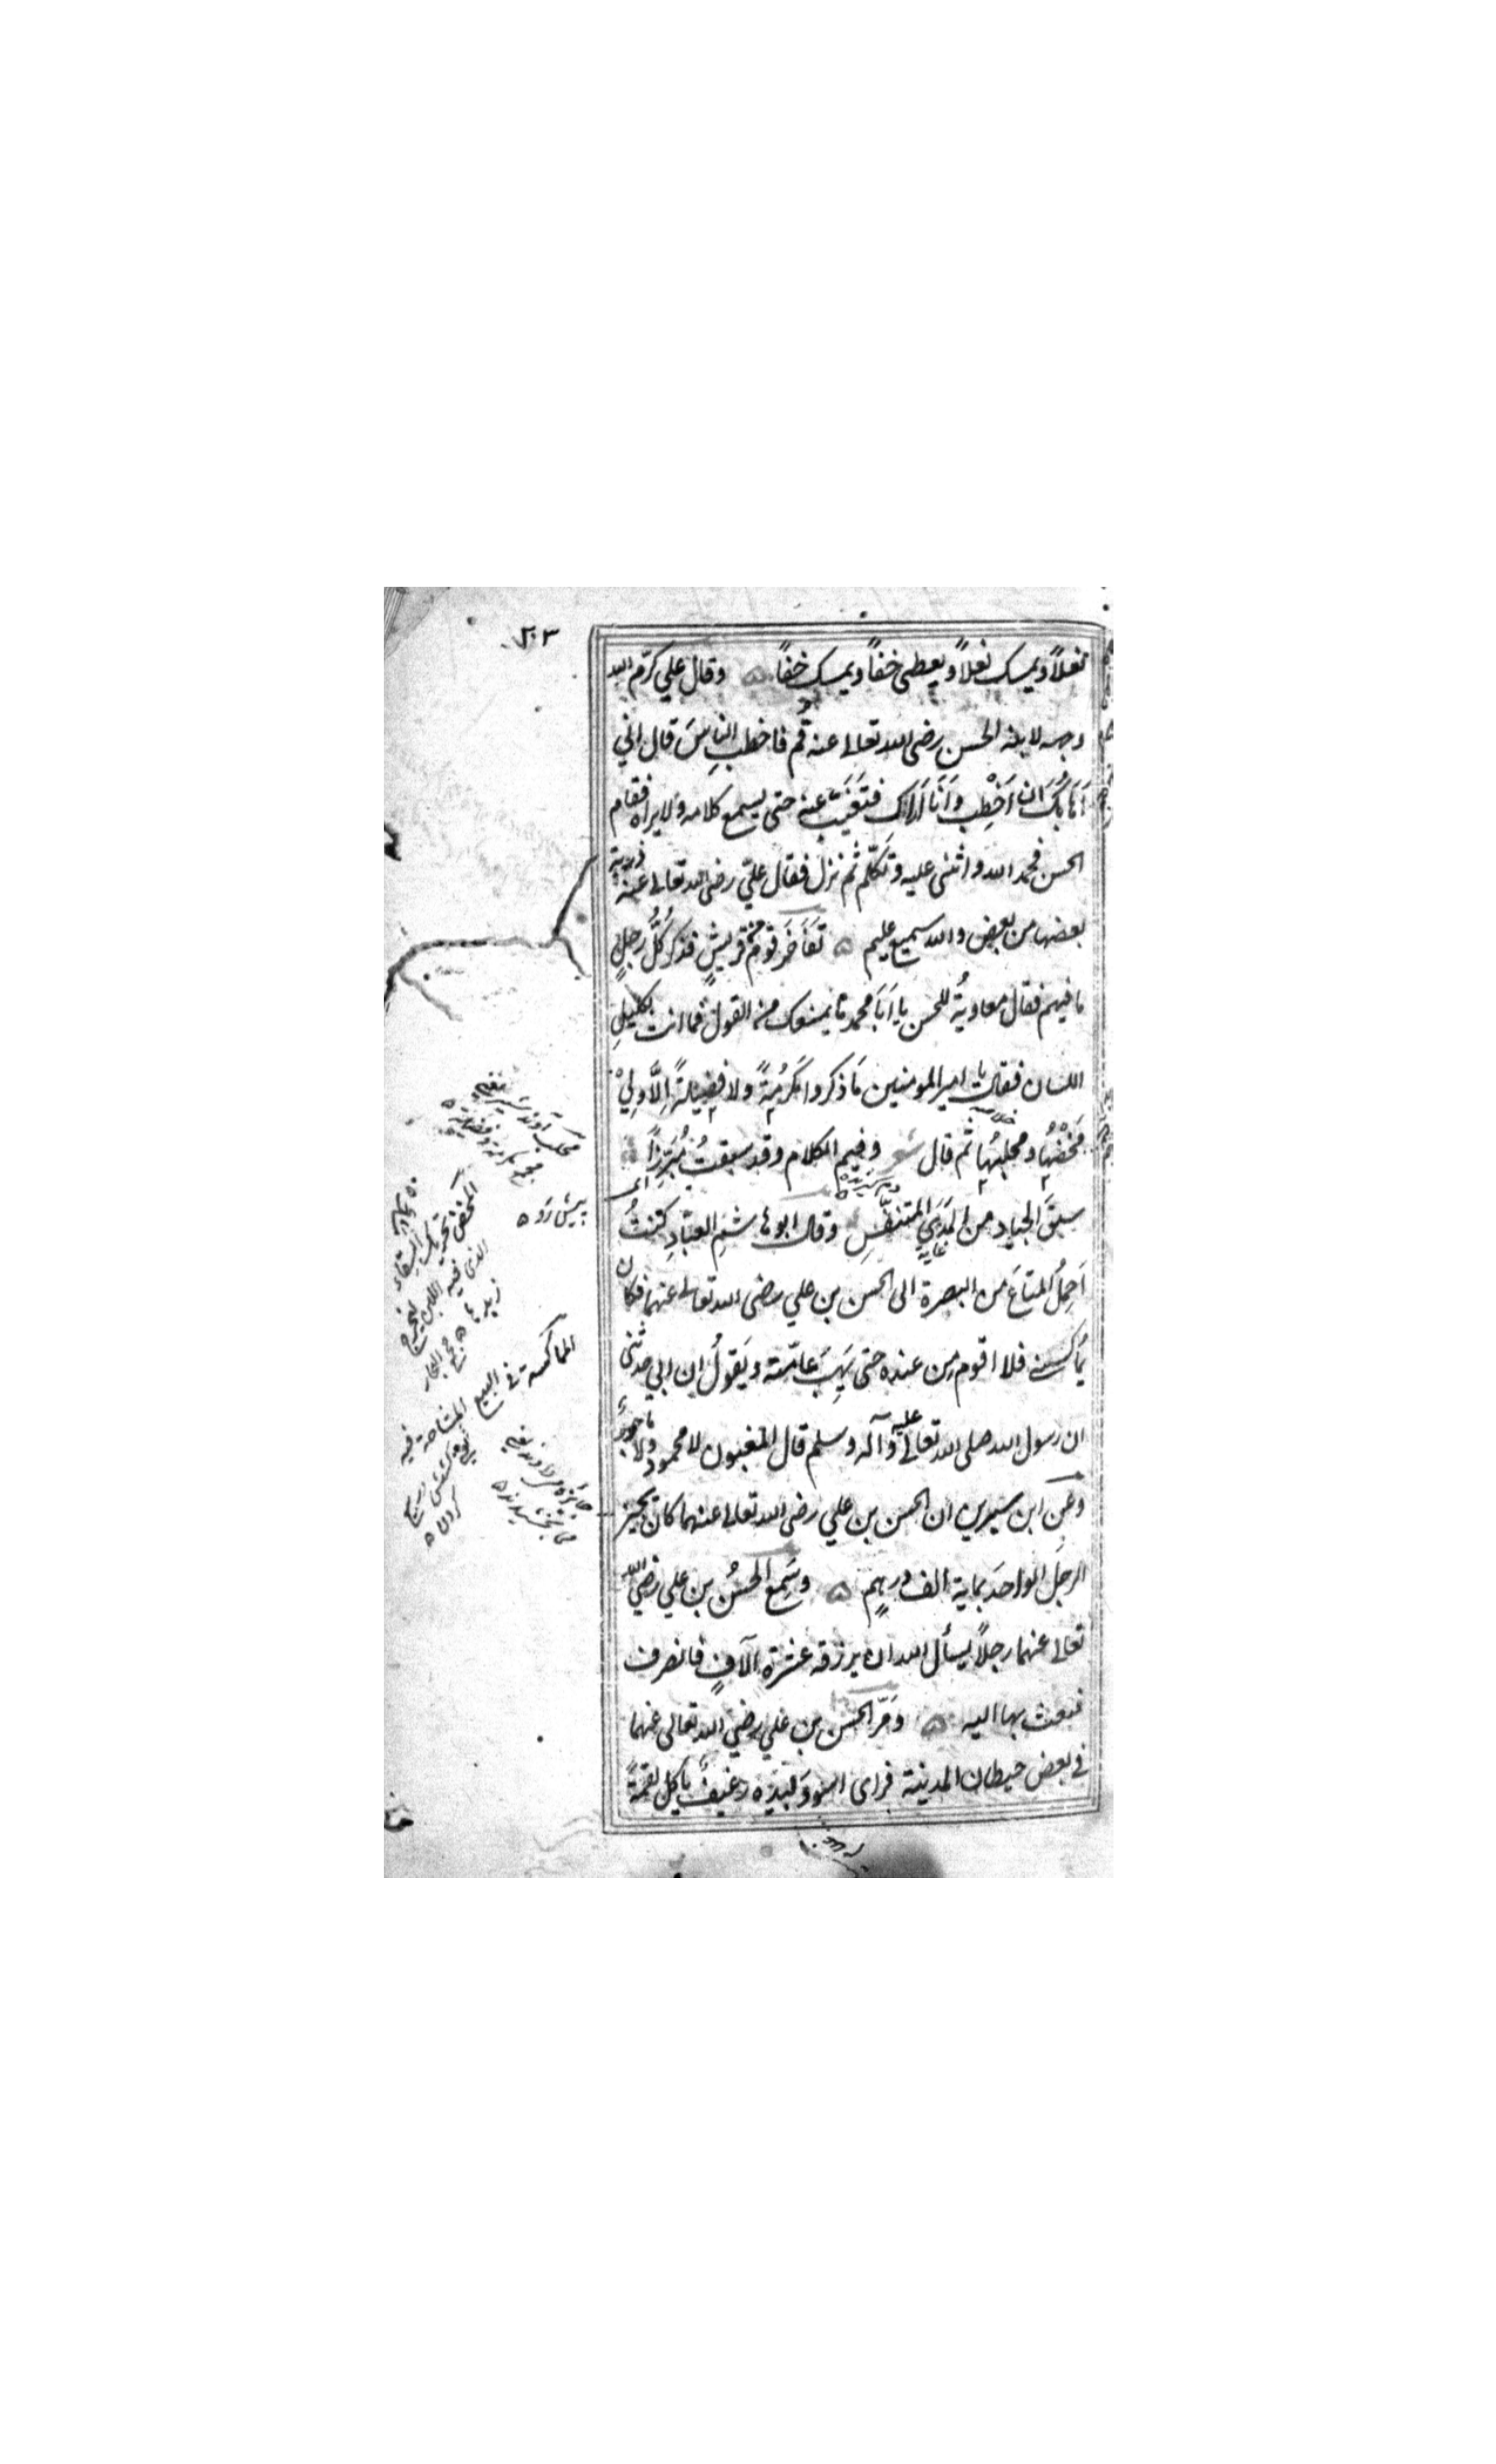 ٢٠٣
نعلاً ويمسك نعلاً ويعطى خفاً ويمسك خفاً ۵ وقال علي كرّم الله
وجهه لابنه الحسن رضى الله تعالى عنه قم فاخطب الناسَ قال انّي
اَهَابُكَ ان اَخْطِب وَاَنَا اَرَاك فتَغَيَّبَ عنه حتى يسمع كلامه ولا يراه فقام
الحسن فحمد الله واثنى عليه وتكلّم ثم نزل فقال عليّ رضى الله تعالى عنه ذرية
بعضها من بعض والله سميع عليم ۵ تَفَاخَرَ قومٌ من قريشٍ فذكر كُلُّ رجلٍ
ما فيهم فقال معاويةُ للحسن يا اَبَا محمد ما يمنعك من القول فما انت بكليلِ
اللسان فقال يا امير المومنين مَا ذكروا مَكْرُمَةً ولا فضيلةً اِلّا ولِيْ
مَخْضُها ومحلبُها ثم قال شعر وفيم الكلام وقد سبقتُ مُبَرِّزاً
سبقَ الجياد من المدَى المتنفّسِ وقال ابو هاشم العبّادِ كنتُ
اَحمِلُ المتاعَ من البصرة الى الحسن بن علي رضى الله تعالى عنهما فكان
يُمَاكسني فلا اقوم مِن عنده حتى يَهِبَ عامّته ويَقولُ ان ابي حدثنى
ان رسول الله صلى الله تعالى عليه وآله وسلم قال المغبون لا محمود ولا ماجورٌ
وعن ابن سيرين ان الحسن بن علي رضى الله تعالى عنهما كان يجيز
الرجلَ الواحدَ بماية الف درهمٍ ۵ وسَمِعَ الحسنُ بن علي رضي الله
تعالى عنهما رجلاً يسأل الله ان يرزقه عشرة آلافٍ فانصرف
فبعث بها اليه ۵ ومَرّ الحسن بن علي رضي الله تعالى عنهما
في بعض حيطان المدينة فراى اسود وبيده رغيفٌ ياكل لقمةً
غاية
پیش رو ۵
المخض تحريك السقاء
الذى فيه اللبن ليخرج
زبدها ۵
المماكسة في البيع
المشاحة فيه